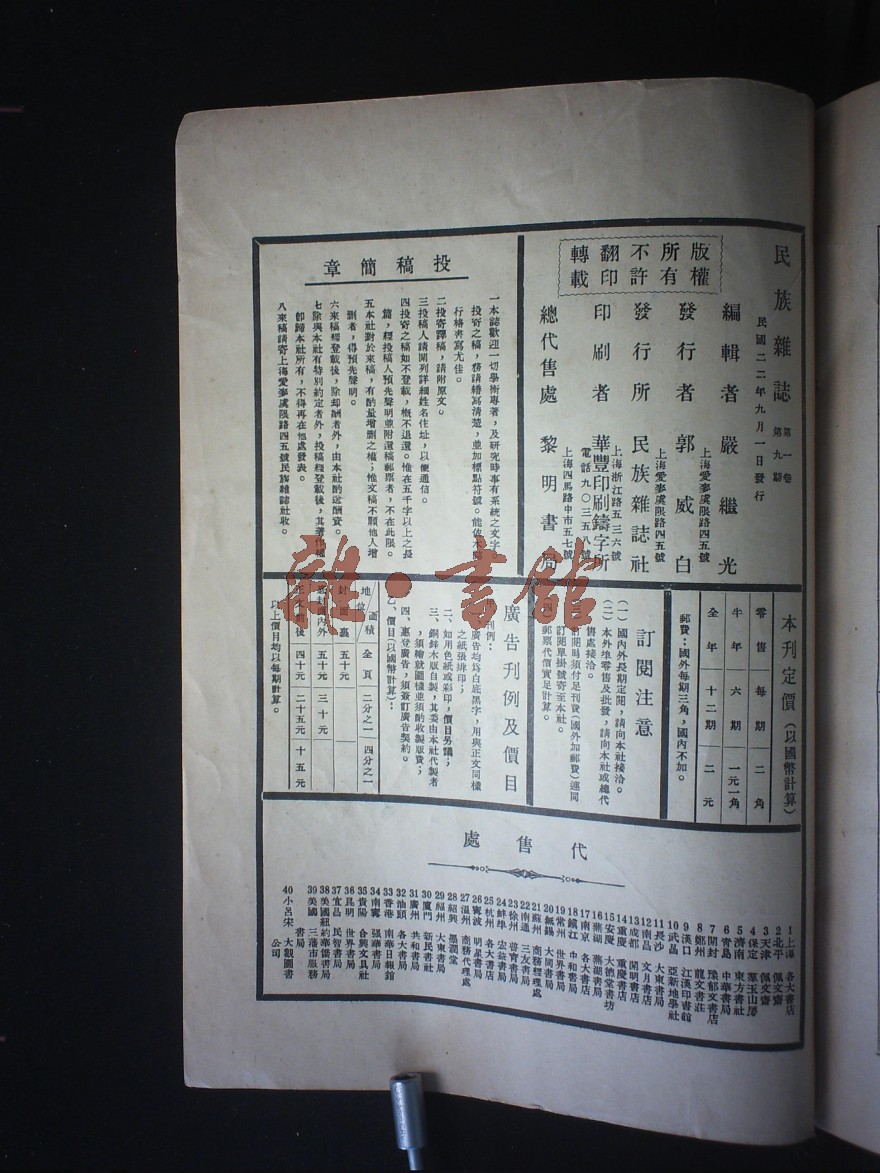 民族雜誌 第一卷 第九期
民國二二年九月一日發行
版權
所有
不許
翻印
轉載
編輯者 嚴繼光
上海愛麥虞限路四五號
發行者 郭威白
上海愛麥虞限路四五號
發行所 民族雜誌社
上海浙江路五三六號
印刷者 華豐印刷鑄字所
電話九〇三五八號
上海四馬路中市五七號
總代售處 黎明書局
投稿簡章
一本誌歡迎一切學術專著,及研究時事有系統之文字
投寄之稿,務請繕寫清楚,並加標點符號。能依本誌
行格書寫尤佳。
二投寄譯稿,請附原文。
三投稿人請開列詳細姓名住址,以便通信。
四投寄之稿如不登載,概不退還。惟在五千字以上之長
篇,經投稿人預先聲明並附還稿郵票者,不在此限。
五本社對於來稿,有酌量增删之權;惟文稿不願他人增
删者,得預先聲明。
六來稿經登載後,除却酬者外,由本社酌送酬資。
七除與本社有特別約定者外,投稿經登載後,其著作權
卽歸本社所有,不得再在他處發表。
八來稿請寄上海愛麥虞限路四五號民族雜誌社收。
本刊定價(以國幣計算)
零售 每期 二角
半年 六期 一元一角
全年 十二期 二元
郵費:國外每期三角,國內不加。
訂閱注意
(一)國內外長期定閱,請向本社接洽。
(二)本外埠零售及批發,請向本社或總代
售處接洽。
訂閱時須付足刊費(國外加郵費)連同
訂閱單掛號寄至本社。
郵票代價實足計算。
廣告刊例及價目
刊例:
廣告均爲白底黑字,用與正文同樣
之紙張排印;
二、如用色紙或彩印,價目另議;
三、銅鋅木版自製,其委由本社代製者
,須繪就圖樣並須酌收製版費;
四、惠登廣告,須簽訂廣告契約。
乙、價目(以國幣計算):
地位 面積 全頁 二分之一 四分之一
封面裏 五十元
封內外 五十元 三十元
正文前後 四十元 二十五元 十五元
以上價目均以每期計算。
代售處
1上海 各大書店
2北平 佩文齋
3天津 佩文齋
4保定 羣玉山房
5濟南 東方書社
6青島 中華書局
7開封 豫郁文書店
8鄭州 龍文書莊
9漢口 江漢印書館
10武昌 亞新地學社
11長沙 大東書局
12南昌 文月書局
13成都 開明書店
14重慶 重慶書店
15安慶 大德堂書坊
16蕪湖 蕪湖書局
17南京 各大書局
18鎮江 中和書局
19常州 世界書局
20無錫 大同書局
21蘇州 商務經理處
22南通 三友書局
23徐州 普育書局
24蚌埠 宏益書局
25杭州 各大書店
26寧波 明星書局
27溫州 商務代理處
28紹興 墨潤堂
29福州 大東書局
30廈門 新民書社
31廣州 共和書局
32汕頭 各大書局
33香港 南華日報館
34南寧 強華書局
35貴陽 合興文具社
36昆明 世界書局
37宜昌 民智書局
38美國紐約華僑書局
39美國 三藩市服務
書局
40小呂宋 大觀圖書
公司
龍·書館